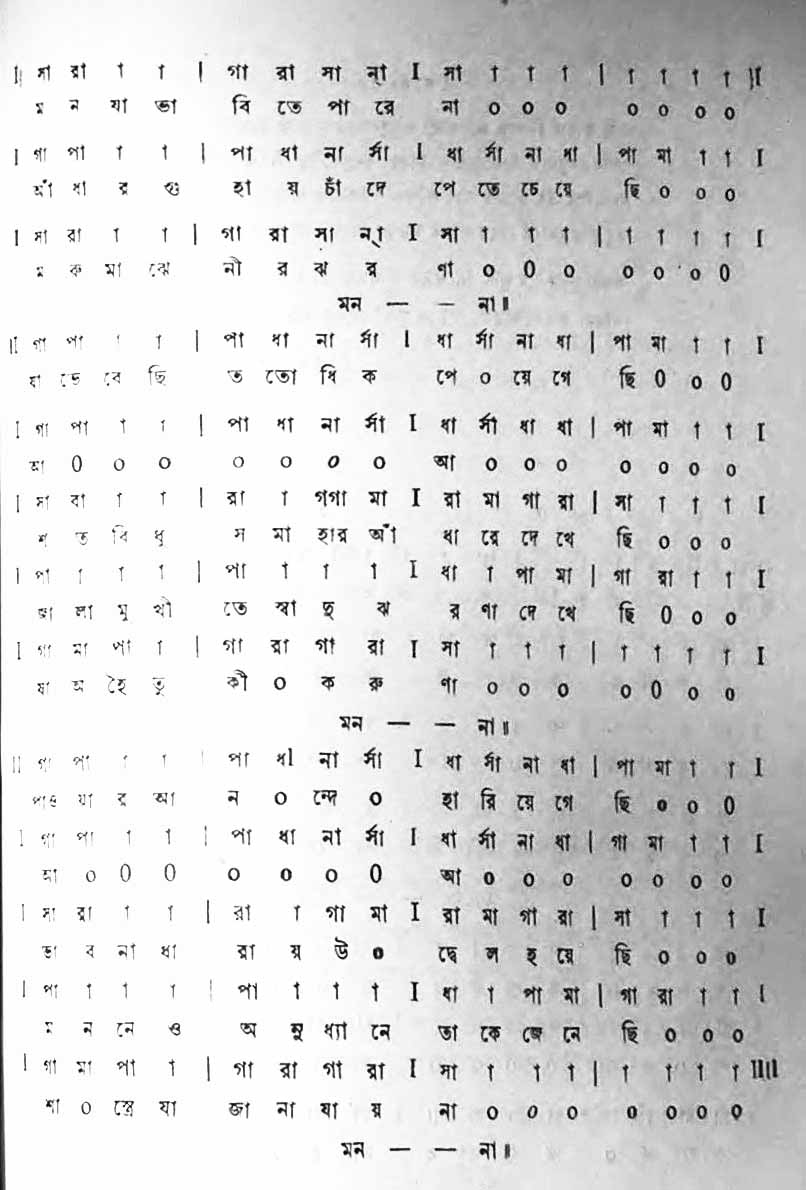 I সা রা া া | গা রা সা ন্া I সা া া া | া া া া }I
ম ন যা ভা বি তে পা রে না ০ ০ ০ ০ ০ ০ ০
I গা পা া া | পা ধা না র্সা I ধা র্সা না ধা | পা মা া া I
আঁ ধা র গু হা য় চাঁ দে পে তে চে য়ে ছি ০ ০ ০
I সা রা া া | গা রা সা ন্া I সা া া া | া া া া I
ম রু মা ঝে নী র ঝ র ণা ০ ০ ০ ০ ০ ০ ০
মন — — না॥
II গা পা া া | পা ধা না র্সা I ধা র্সা না ধা | পা মা া া I
যা ভে বে ছি ত তো ধি ক পে ০ য়ে গে ছি ০ ০ ০
I গা পা া া | পা ধা না র্সা I ধা র্সা ধা ধা | পা মা া া I
আ ০ ০ ০ ০ ০ ০ ০ আ ০ ০ ০ ০ ০ ০ ০
I সা রা া া | রা া গ্গা মা I রা মা গা রা | সা া া া I
শ ত বি ধু স মা হার আঁ ধা রে দে খে ছি ০ ০ ০
I পা া া া | পা া া া I ধা া পা মা | গা রা া া I
জ্বা লা মু খী তে স্বা দু ঝ র ণা দে খে ছি ০ ০ ০
I গা মা পা া | গা রা গা রা I সা া া া | া া া া I
যা অ হৈ তু কী ০ ক রু ণা ০ ০ ০ ০ ০ ০ ০
মন — — না॥
II গা পা া া | পা ধা না র্সা I ধা র্সা না ধা | পা মা া া I
পাও যা র আ ন ০ ন্দে ০ হা রি য়ে গে ছি ০ ০ ০
I গা পা া া | পা ধা না র্সা I ধা র্সা না ধা | গা মা া া I
আ ০ ০ ০ ০ ০ ০ ০ আ ০ ০ ০ ০ ০ ০ ০
I সা রা া া | রা া গা মা I রা মা গা রা | সা া া া I
ভা ব না ধা রা য় উ ০ দ্বে ল হ য়ে ছি ০ ০ ০
I পা া া া | পা া া া I ধা া পা মা | গা রা া া I
ম ন নে ও অ নু ধ্যা নে তা কে জে নে ছি ০ ০ ০
I গা মা পা া | গা রা গা রা I সা া া া | া া া া IIII
শা ০ স্ত্রে যা জা না যা য় না ০ ০ ০ ০ ০ ০ ০
মন — — না॥